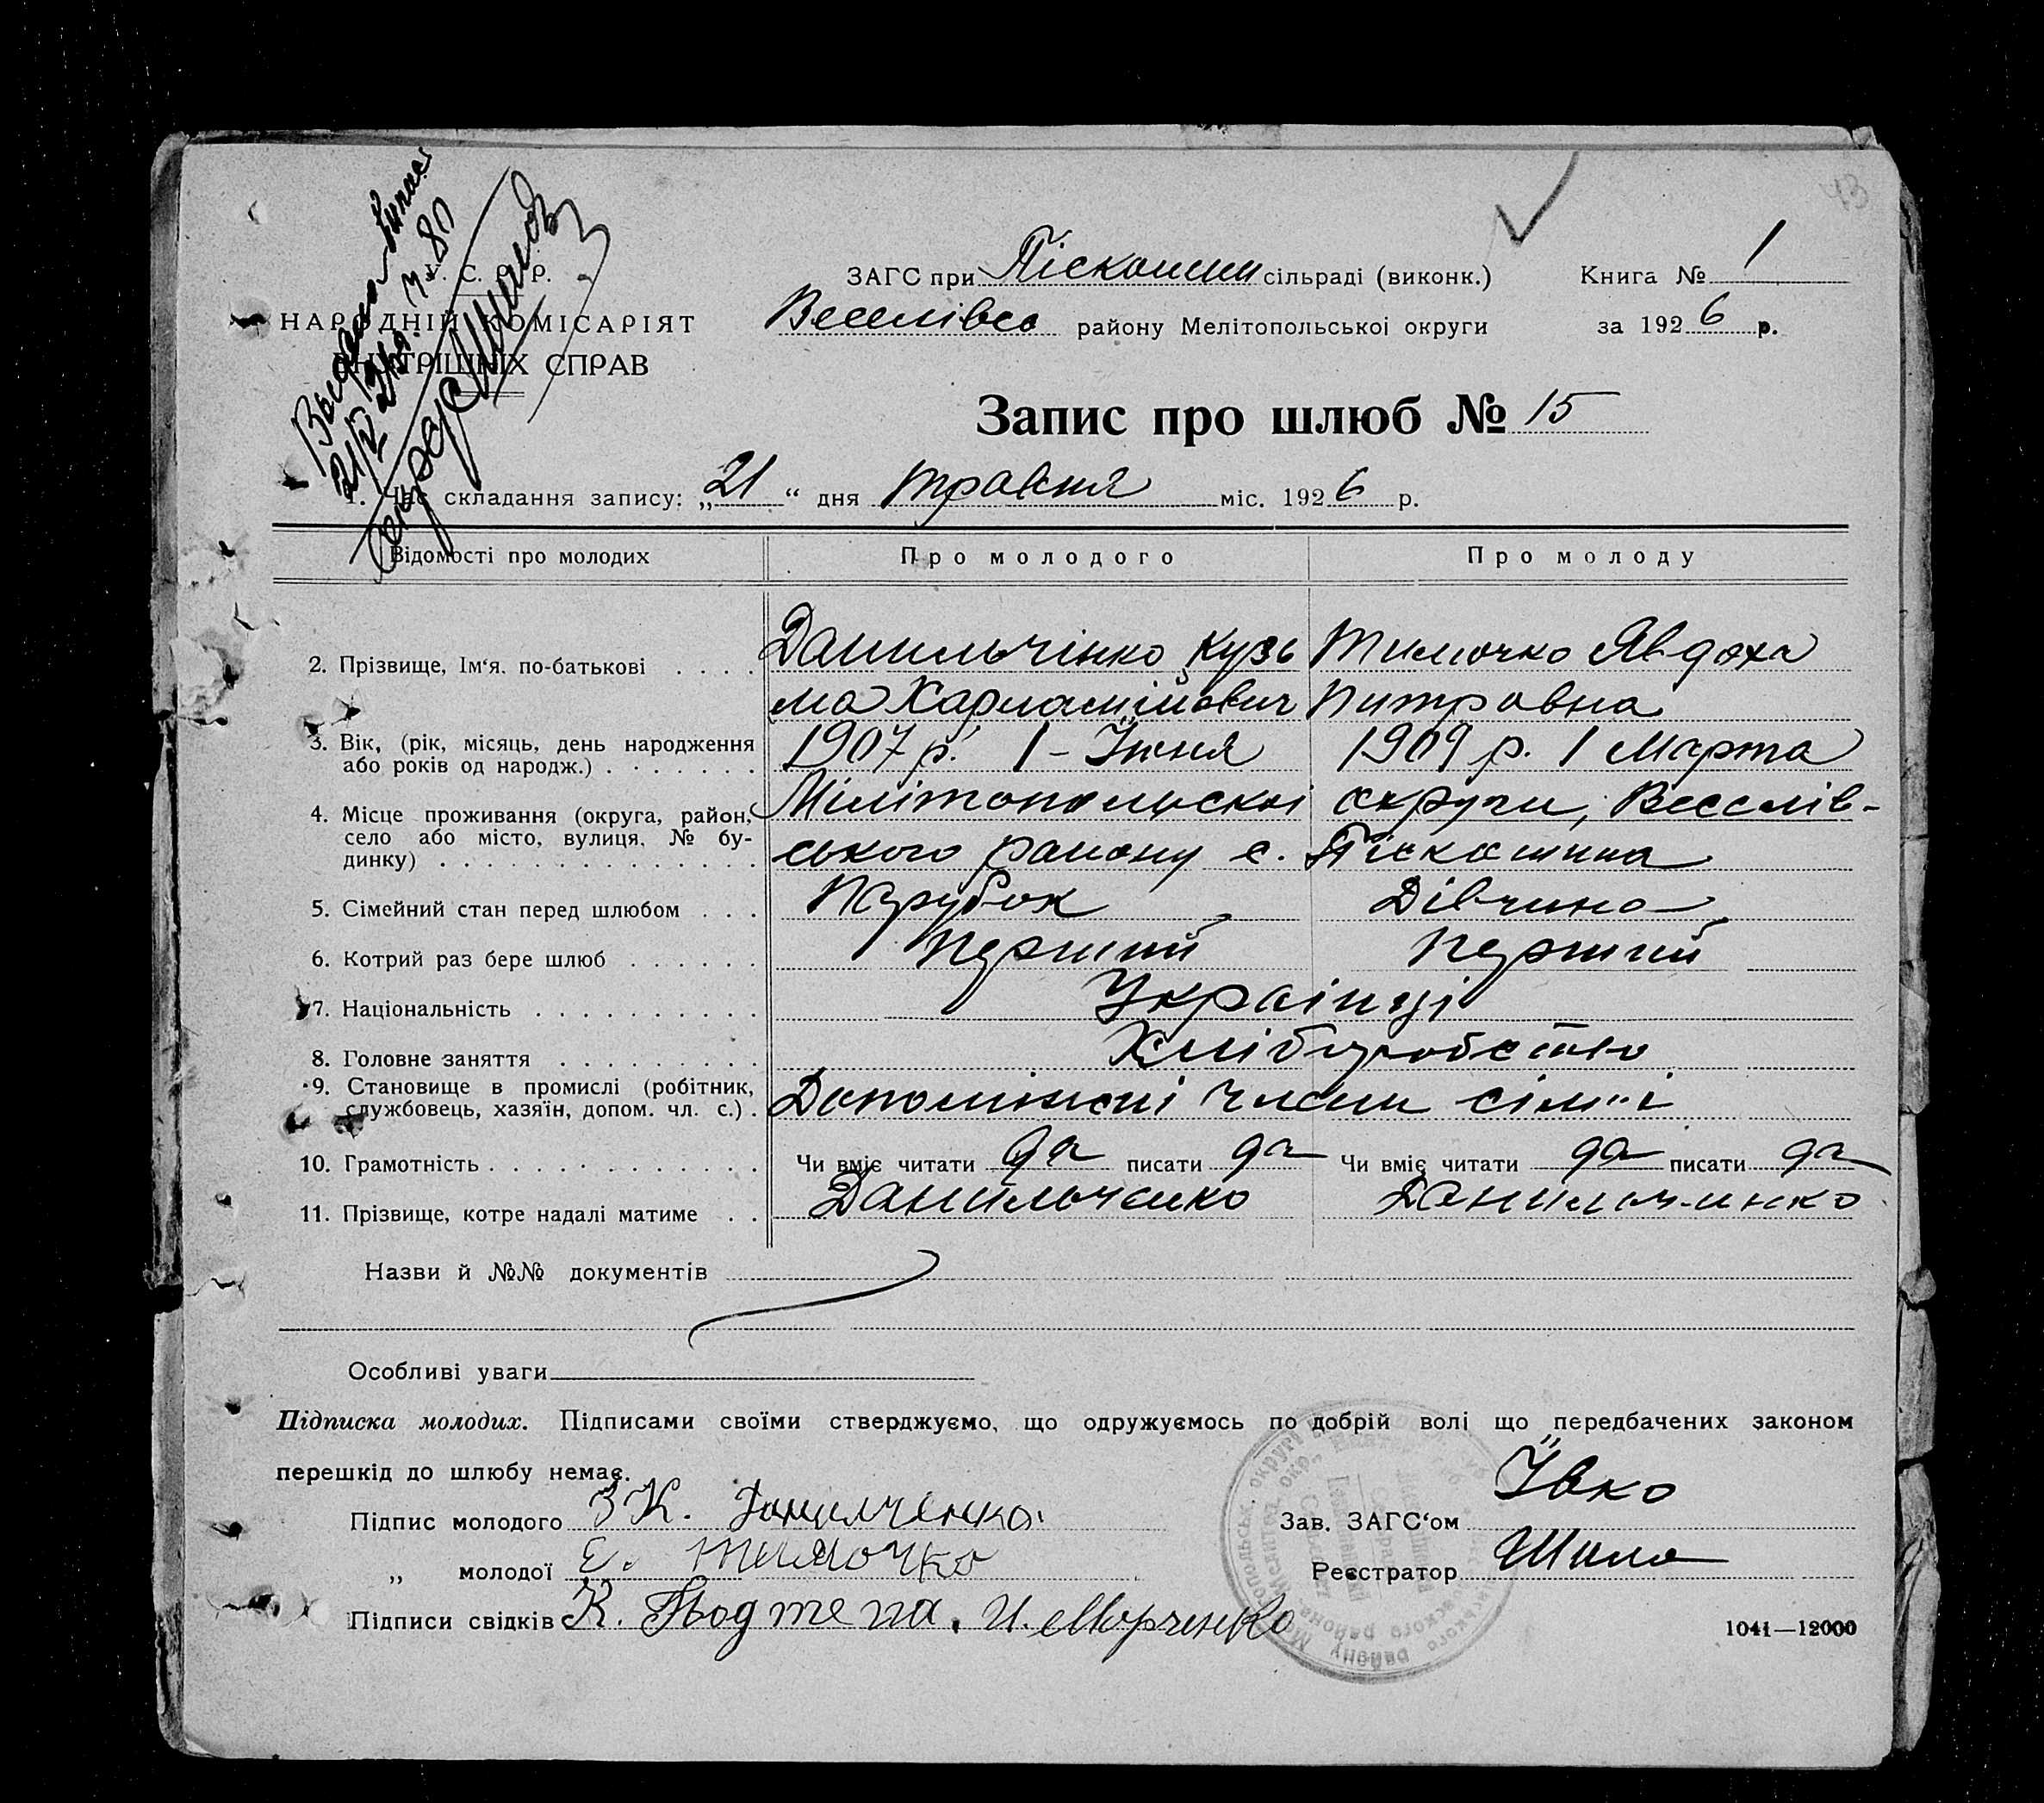 43
У. С. Р. Р.
НАРОДНІЙ КОМІСАРІЯТ
ВНУТРІШНІХ СПРАВ
ЗАГС при Піскошин сільраді (виконк.) Книга № 1
Веселівсо району Мелітопольськоі округи за 1926 р.
Запис про шлюб № 15
1. Час складання запису: „21“ дня травня міс. 1926 р.
Відомості про молодих Про молодого Про молоду
2. Прізвище, Ім‘я, по-батькові Данильчінко Кузь Тимочко Явдоха
ма Харлампійович Питровна
3. Вік, (рік, місяць, день народження 1907 р. 1 - Июня 1909 р. 1 Марта
або років од народж.)
4. Місце проживання (округа, район, Мілітопольскоі округи, Веселів-
село або місто, вулиця, № бу- ського району с. Піскошина
динку)
5. Сімейний стан перед шлюбом Парубок Дівчина
6. Котрий раз бере шлюб Перший Перший
7. Національність Украінці
8. Головне заняття Хліборобство
9. Становище в промислі (робітник, Допоміжні члени сім"і
службовець, хазяїн, допом. чл. с.)
10. Грамотність Чи вміє читати да писати да Чи вміє читати да писати да
11. Прізвище, котре надалі матиме Данильченко Данильчинко
Назви й №№ документів
Особливі уваги
Підписка молодих. Підписами своїми стверджуємо, що одружуємось по добрій волі що передбачених законом
перешкід до шлюбу немає.
Підпис молодого К. Данилченко Зав. ЗАГС‘ом Ївко
„ молодої Є. Тимочко Реєстратор Шило
Підписи свідків К. Подтепа. И. Марченко
1041—12000